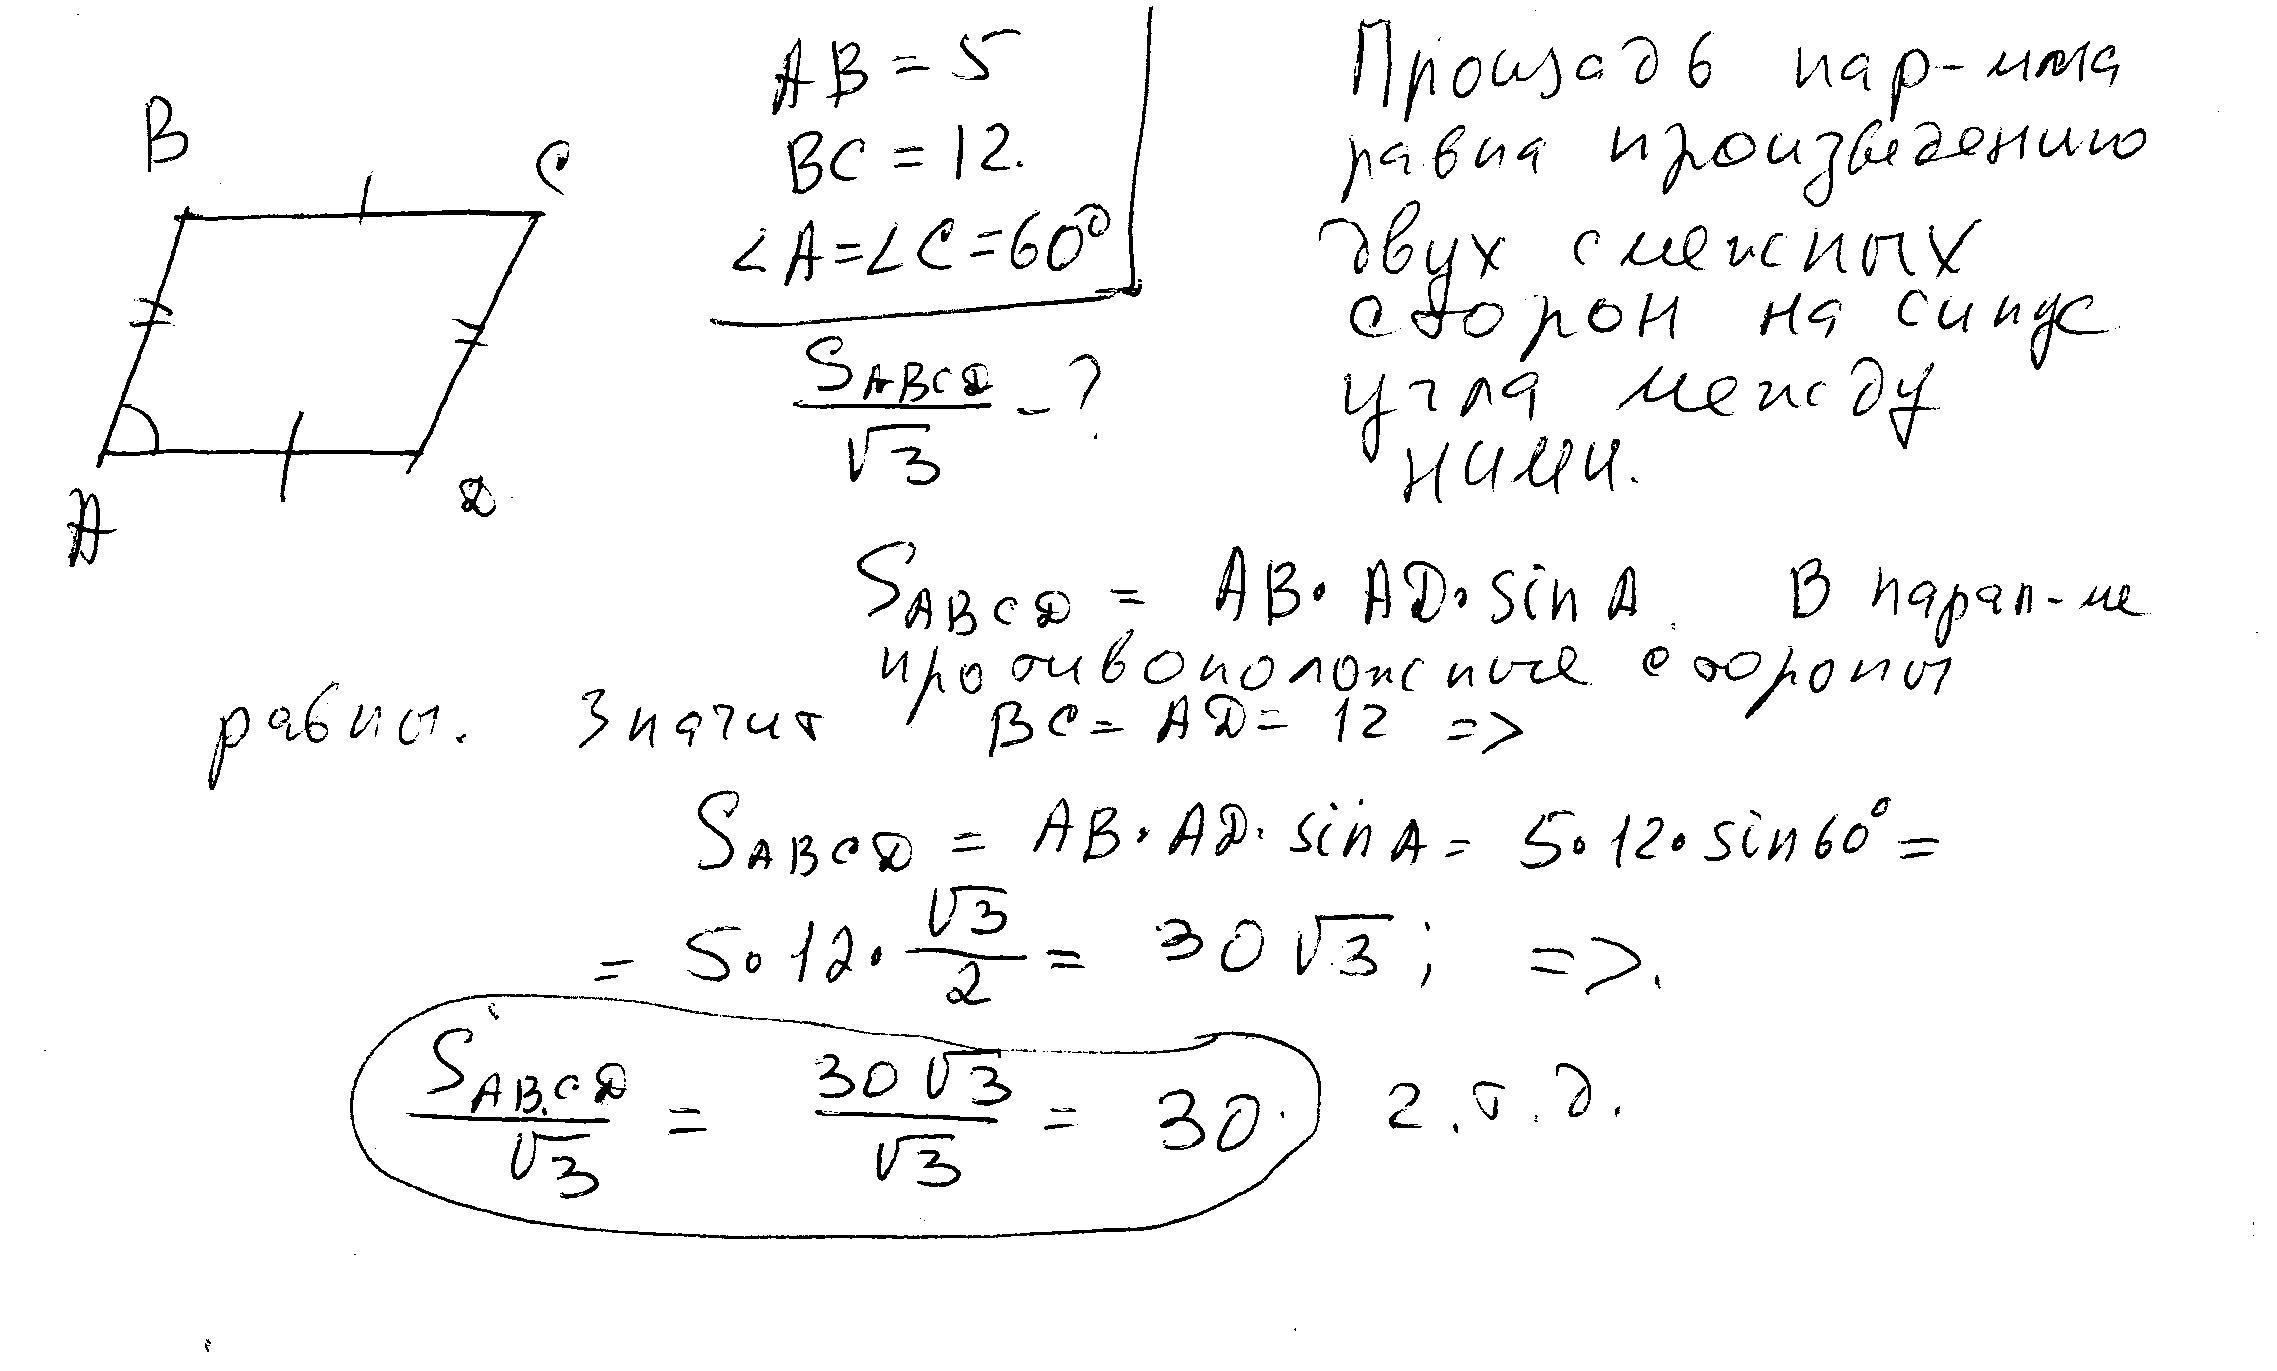 B
C
A
D
AB = 5
BC = 12.
∠A = ∠C = 60°
S_ABCD / √3 - ?
Площадь пар-мма
равна произведению
двух смежных
сторон на синус
угла между
ними.
S_ABCD = AB · AD · sin A. В парал-ме
противоположные стороны
равны. Значит BC = AD = 12 =>
S_ABCD = AB · AD · sin A = 5 · 12 · sin 60° =
= 5 · 12 · √3 / 2 = 30 √3 ; =>.
S_ABCD / √3 = 30 √3 / √3 = 30. ч.т.д.